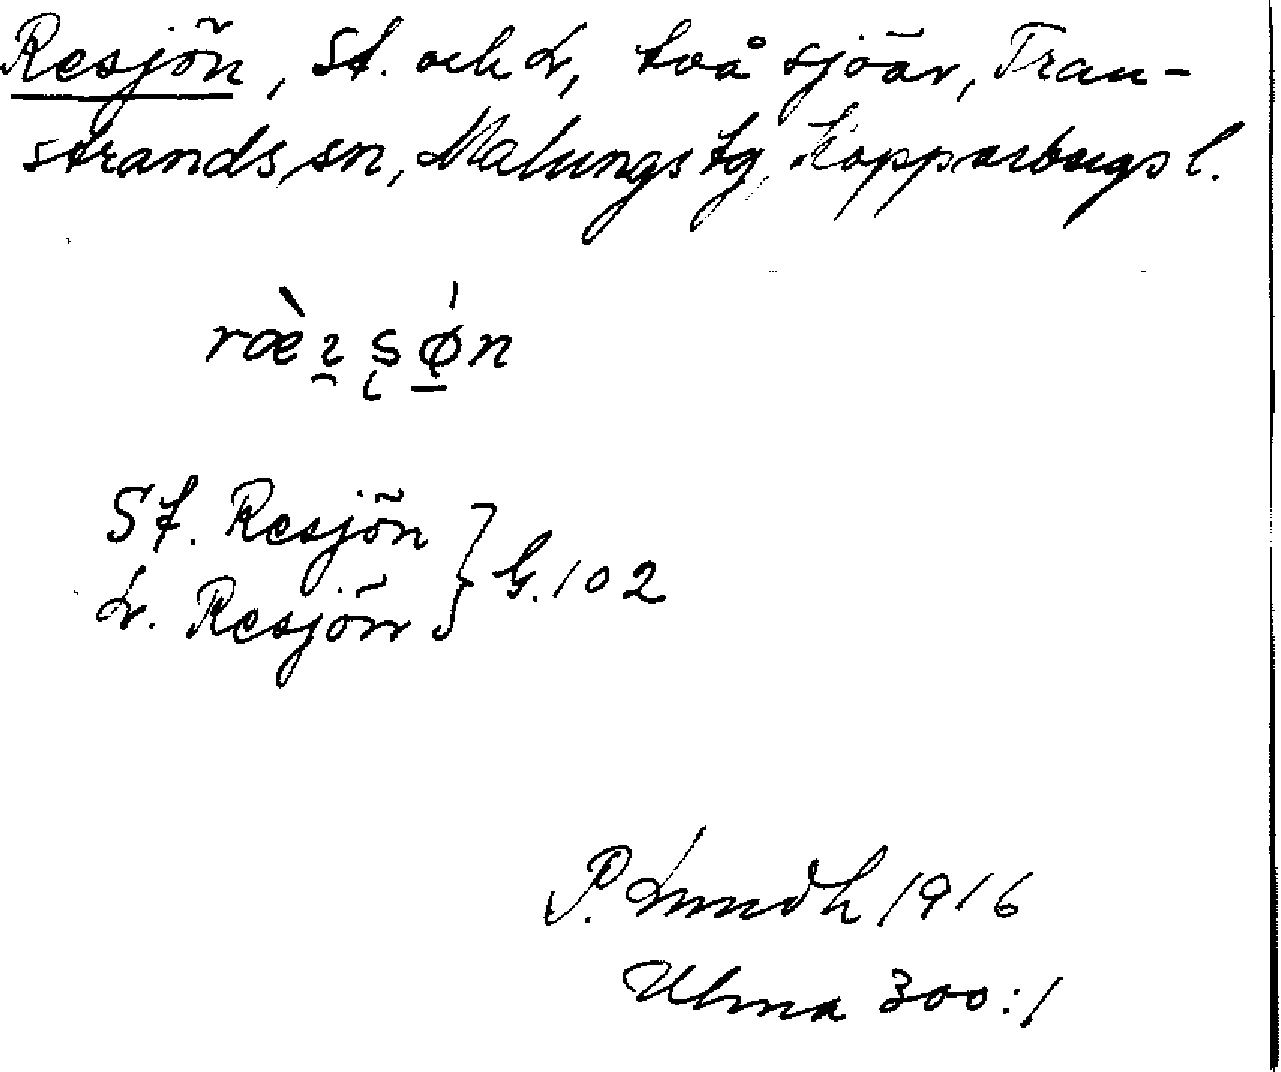 Resjön, St. och L, två sjöar, Tran-
strands sn, Malungs tg, Kopparbergs l.
St. Resjön
L. Resjön } G. 102
P. Lundh 1916
Ulma 300:1